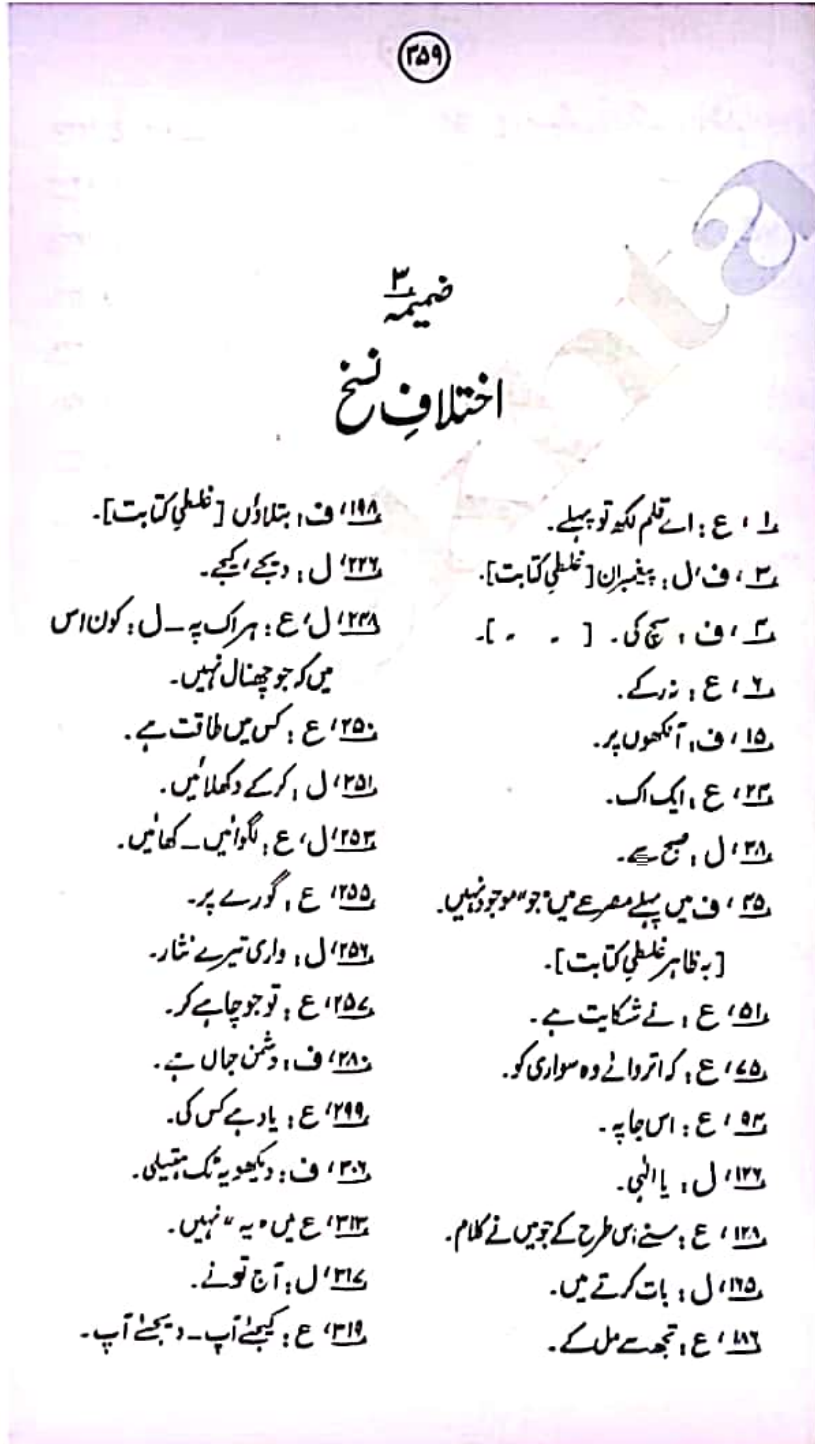 ۳۵۹
ضمیمہ ۳
اختلافِ نسخ
۱، ع: اے قلم لکھ تو پہلے۔
۳، ف، ل: پیغمبران [غلطیِ کتابت]۔
۴، ف: سچ کی۔ [ 〃 〃 ]۔
۶، ع: نہ رکے۔
۱۵، ف: آنکھوں پر۔
۲۳، ع: ایک اک۔
۳۸، ل: صبح سے۔
۴۵، ف میں پہلے مصرعے میں "جو" موجود نہیں۔
[بہ ظاہر غلطیِ کتابت]۔
۵۱، ع: نے شکایت ہے۔
۷۵، ع: کہ اتروائے وہ سواری کو۔
۹۳، ع: اس جا پہ۔
۱۲۶، ل: یا الٰہی۔
۱۲۸، ع: سنے اس طرح کے جو میں نے کلام۔
۱۶۵، ل: بات کرتے میں۔
۱۸۶، ع: تجھ سے مل کے۔
۱۹۸، ف: بتلاؤں [غلطیِ کتابت]۔
۲۲۶، ل: دیجے، کیجے۔
۲۳۸، ل، ع: ہر اک پہ ــ ل: کون اس
میں کہ جو چھنال نہیں۔
۲۵۰، ع: کس میں طاقت ہے۔
۲۵۱، ل: کر کے دکھلائیں۔
۲۵۳، ل، ع: لگوائیں ــ کھائیں۔
۲۵۵، ع: گورے پر۔
۲۵۶، ل: واری تیرے نثار۔
۲۵۷، ع: تو جو چاہے کر۔
۲۸۰، ف: دشمن جاں ہے۔
۲۹۹، ع: یاد ہے کس کی۔
۳۰۶، ف: دیکھو یہ ٹک ہتیلی۔
۳۱۳، ع میں "یہ" نہیں۔
۳۱۷، ل: آج تونے۔
۳۱۹، ع: کیجئے آپ ــ دیجئے آپ۔